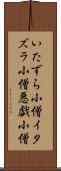 いたずら小僧イタ
ズラ小僧悪戯小僧